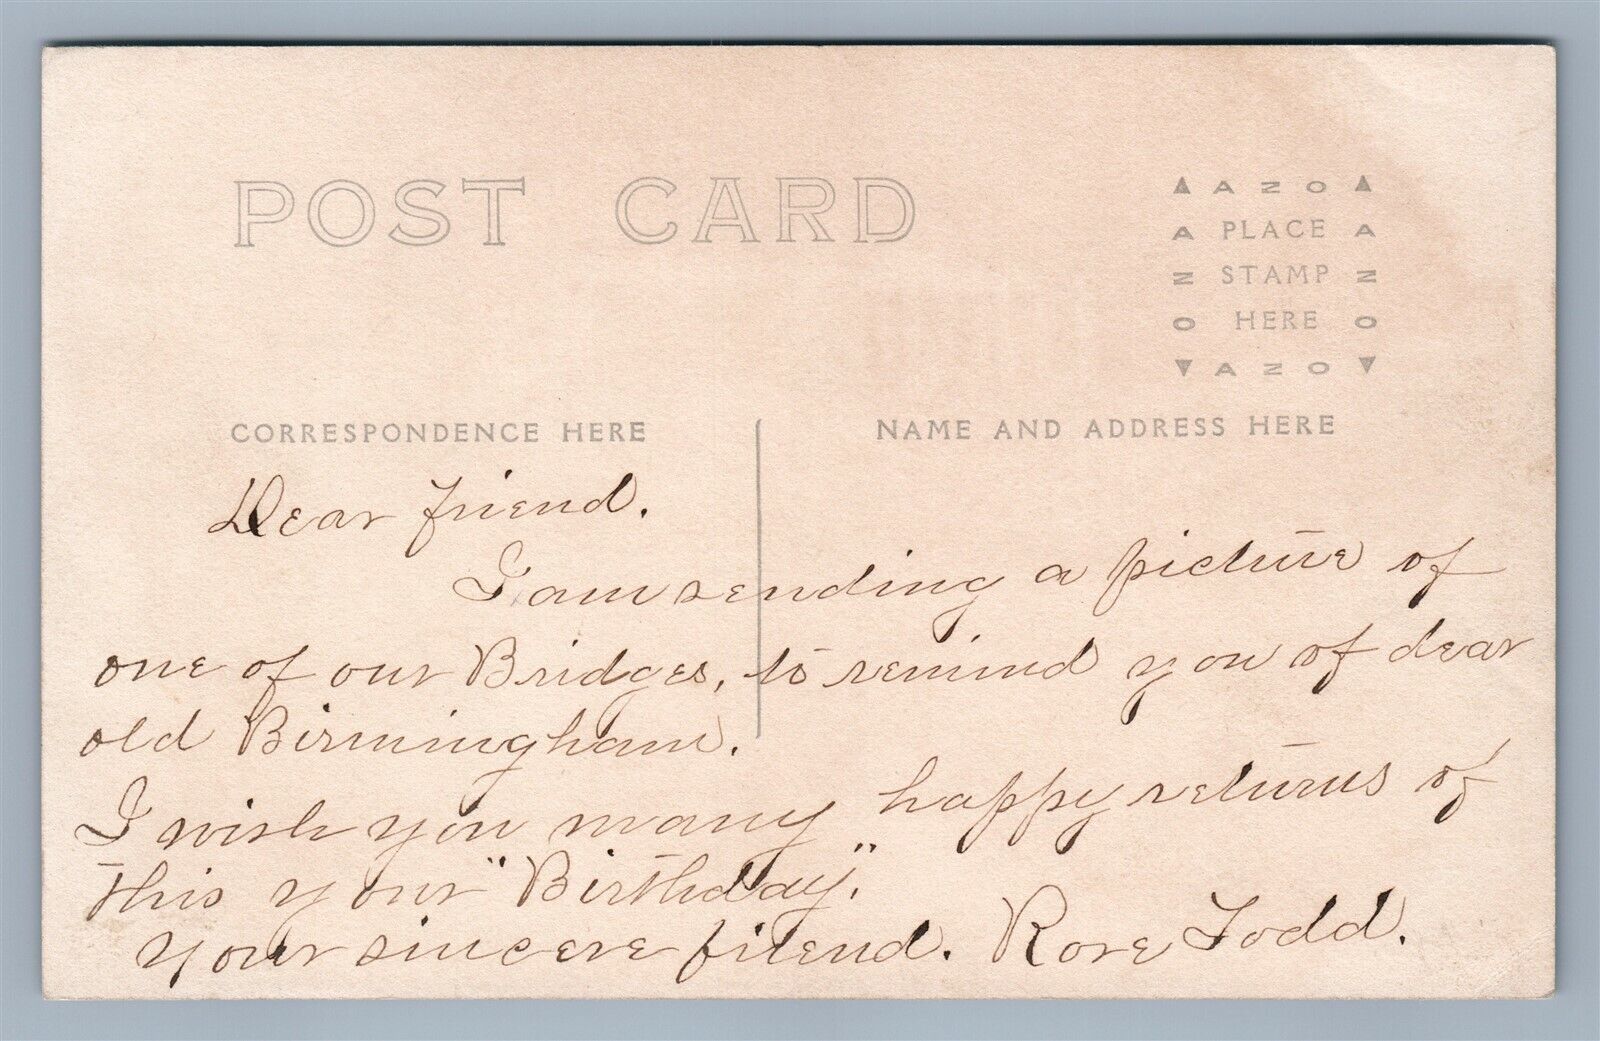 POST CARD
▲ A Z O ▲
A PLACE A
Z STAMP Z
O HERE O
▼ A Z O ▼
CORRESPONDENCE HERE
NAME AND ADDRESS HERE
Dear friend.
I am sending a picture of
one of our Bridges, to remind you of dear
old Birmingham.
I wish you many happy returns of
this your "Birthday."
Your sincere friend. Rose Todd.